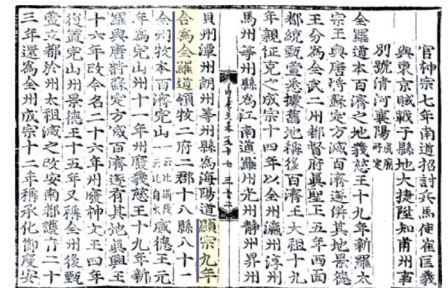 官神宗七年南道招討兵馬使崔匡義
與東京賊戰于縣地大捷陞知甫州事
別號淸河襄陽成廟所定
全羅道本百濟之地義慈王十九年新羅太
宗王與唐將蘇定方滅百濟遂併其地景德
王分爲全武二州都督府眞聖王五年西面
都統甄萱悉據舊地稱後百濟王太祖十九
年親征克之成宗十四年以全州瀛州淳州
馬州等州縣爲江南道羅州光州靜州昇州
貝州潭州朗州等州縣爲海陽道顯宗九年
合爲全羅道領牧二府二郡十八縣八十二
全州牧本百濟完山一云比斯伐一云比自火威德王元
年爲完山州十一年州廢義慈王十九年新
羅與唐將蘇定方滅百濟遂有其地眞興王
十六年改今名二十六年州廢神文王四年
復置完山州景德王十五年又稱全州後甄
萱立都於州太祖滅之改安南都護二十
三年還爲全州成宗十二年稱承化節度安